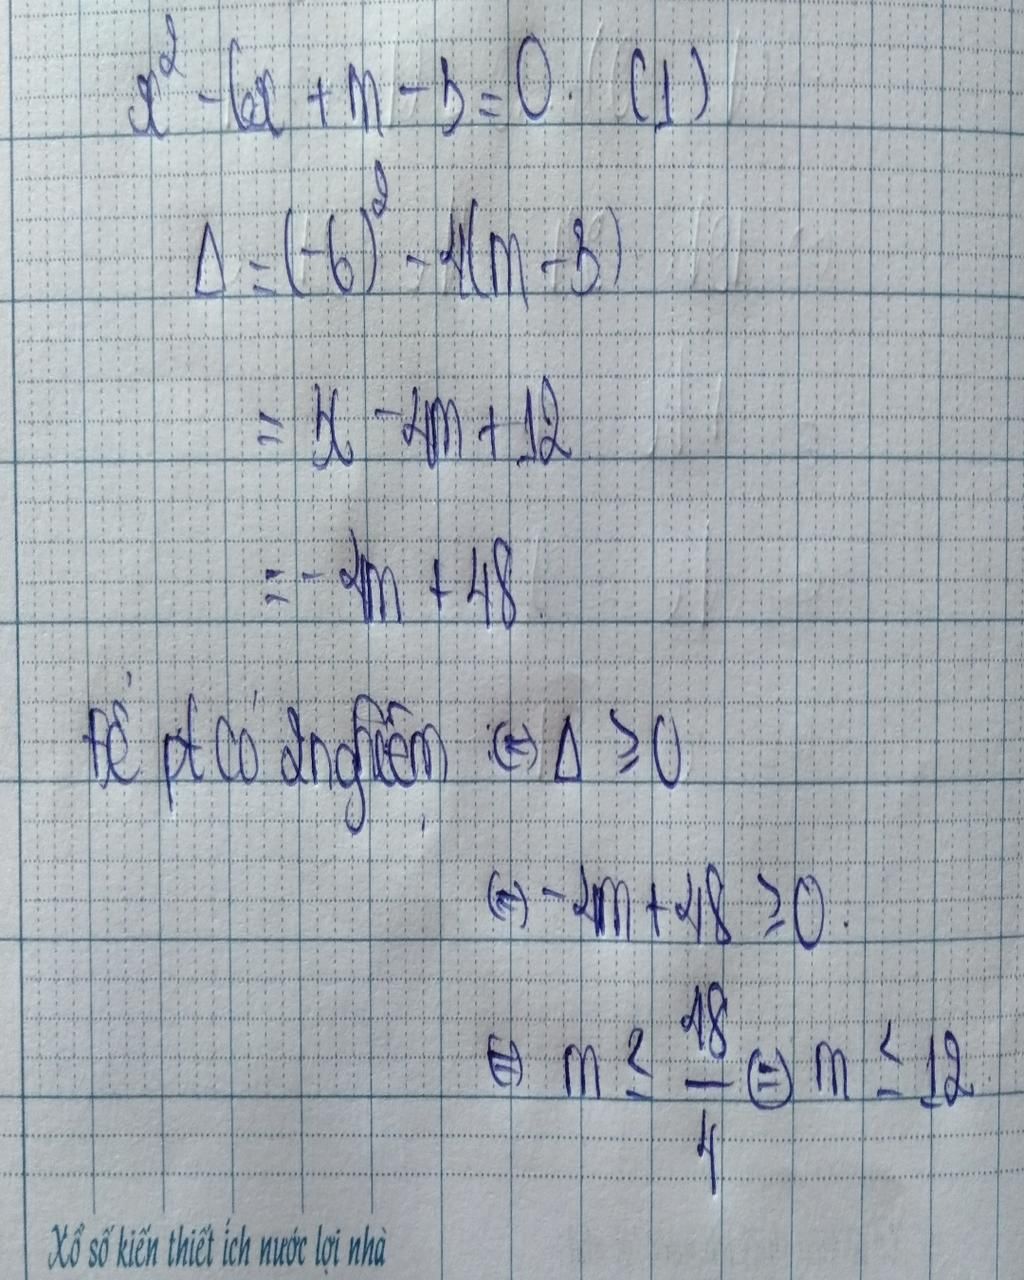 x² - 6x + m - 3 = 0. (1)
Δ = (-6)² - 4(m - 3)
= 36 - 4m + 12
= - 4m + 48
Để pt có 2 nghiệm ⇔ Δ ≥ 0
⇔ - 4m + 48 ≥ 0.
⇔ m ≤ 48/4 ⇔ m ≤ 12
Xổ số kiến thiết ích nước lợi nhà